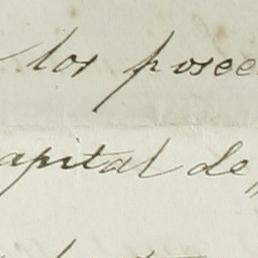 los posee
apital de